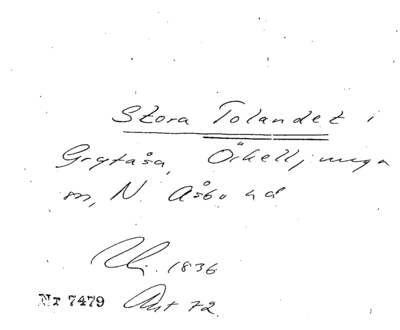 Stora Tolandet i
Grytåsa, Örkelljunga
sn, N. Åsbo hd
1836
Nr 7479 Ant 72.